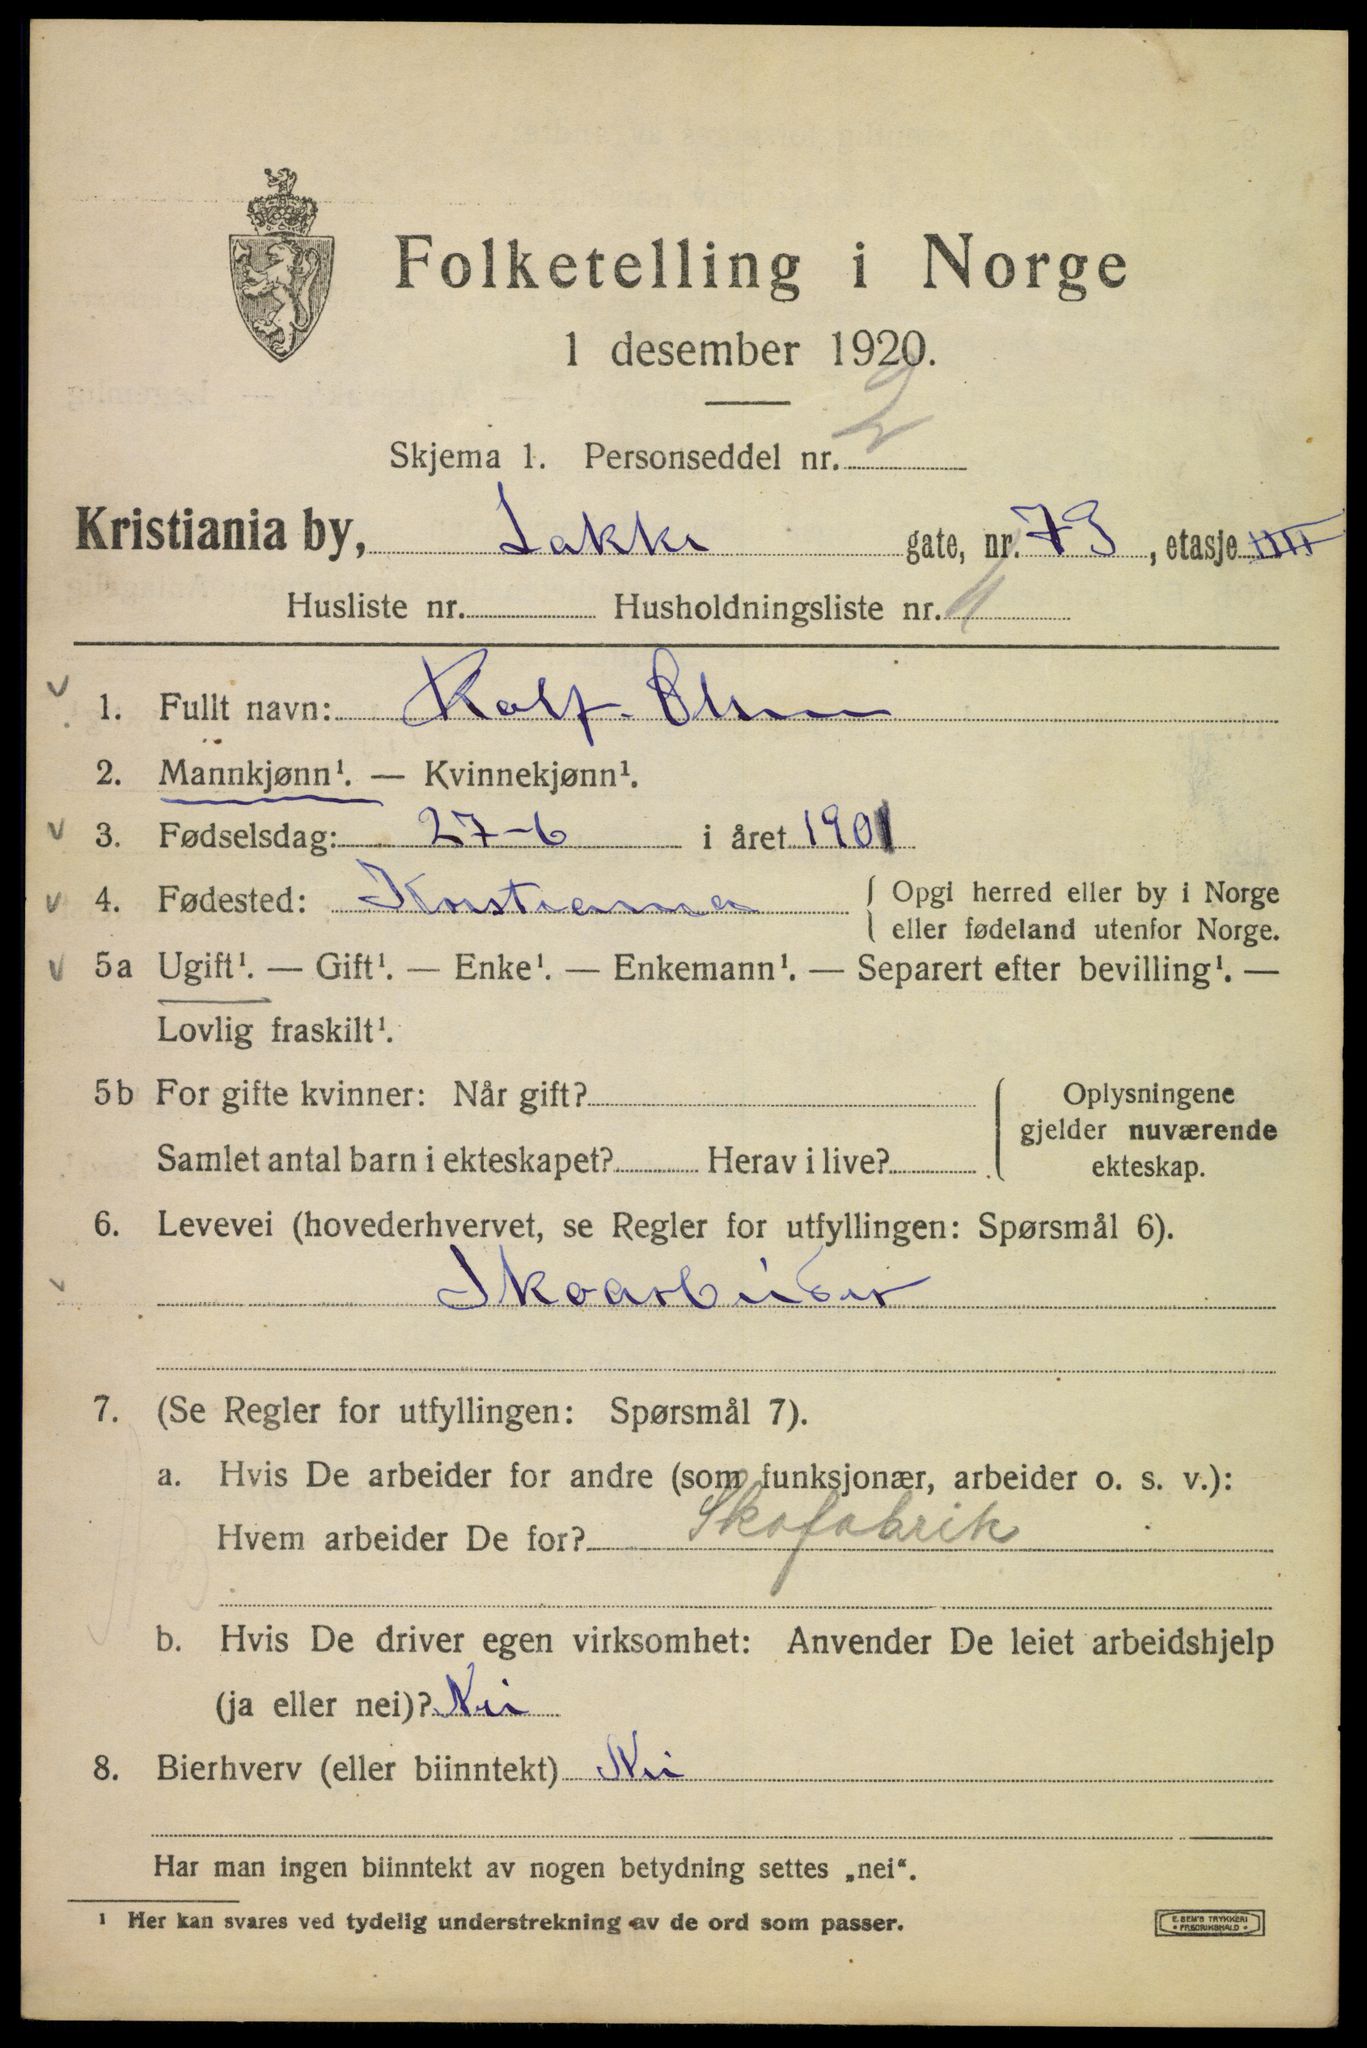 Folketelling i Norge
1 desember 1920.
Skjema 1. Personseddel nr. 2
Kristiania by, Lakke gate, nr. 73, etasje IIII
Husliste nr. Husholdningsliste nr. 4
1. Fullt navn: Rolf Olsen
2. Mannkjønn¹. — Kvinnekjønn¹.
3. Fødselsdag: 27-6 i året 1901
4. Fødested: Kristiania { Opgi herred eller by i Norge
eller fødeland utenfor Norge.
5a Ugift¹. — Gift¹. — Enke¹. — Enkemann¹. — Separert efter bevilling¹. —
Lovlig fraskilt¹.
5b For gifte kvinner: Når gift?
Samlet antal barn i ekteskapet? Herav i live?
Oplysningene
gjelder nuværende
ekteskap.
6. Levevei (hovederhvervet, se Regler for utfyllingen: Spørsmål 6).
Skoarbeider
7. (Se Regler for utfyllingen: Spørsmål 7).
a. Hvis De arbeider for andre (som funksjonær, arbeider o. s. v.):
Hvem arbeider De for? Skofabrik
b. Hvis De driver egen virksomhet: Anvender De leiet arbeidshjelp
(ja eller nei)? Nei
8. Bierhverv (eller biinntekt) Nei
Har man ingen biinntekt av nogen betydning settes „nei“.
¹ Her kan svares ved tydelig understrekning av de ord som passer.
E. SEM'S TRYKKERI
• FREDRIKSHALD •